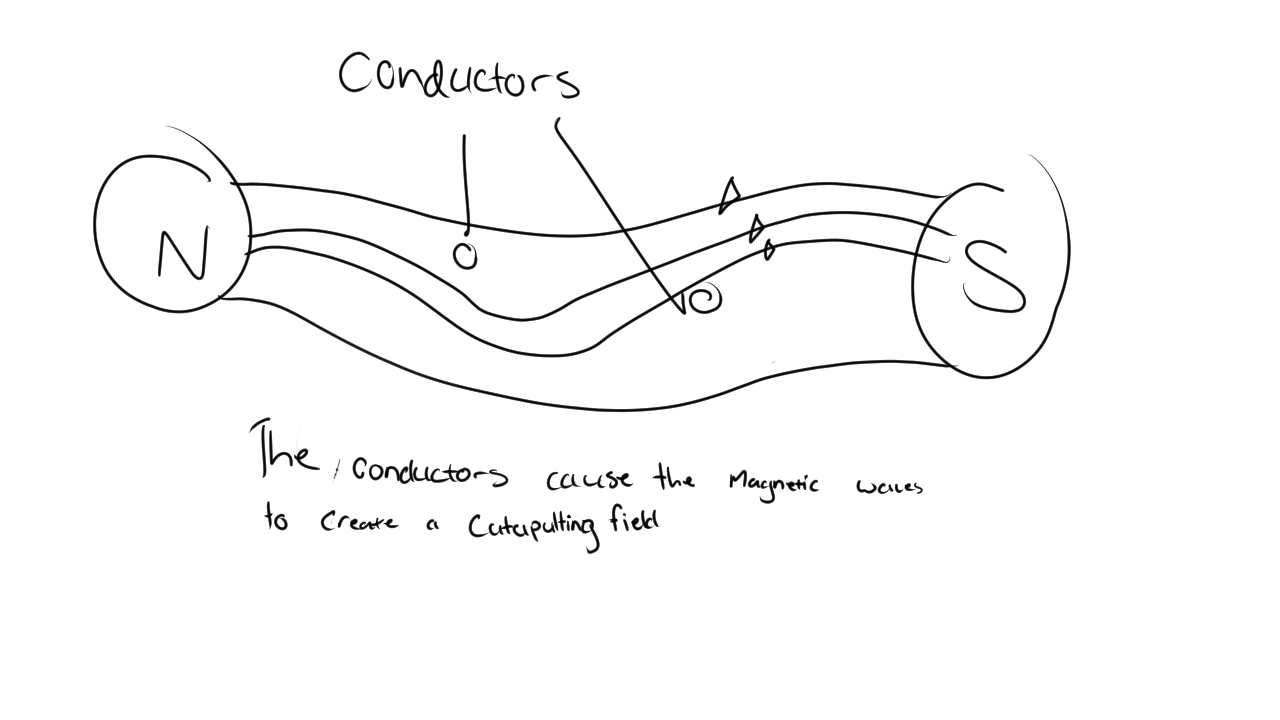 Conductors
N
S
The conductors cause the Magnetic waves
to create a Catapulting field